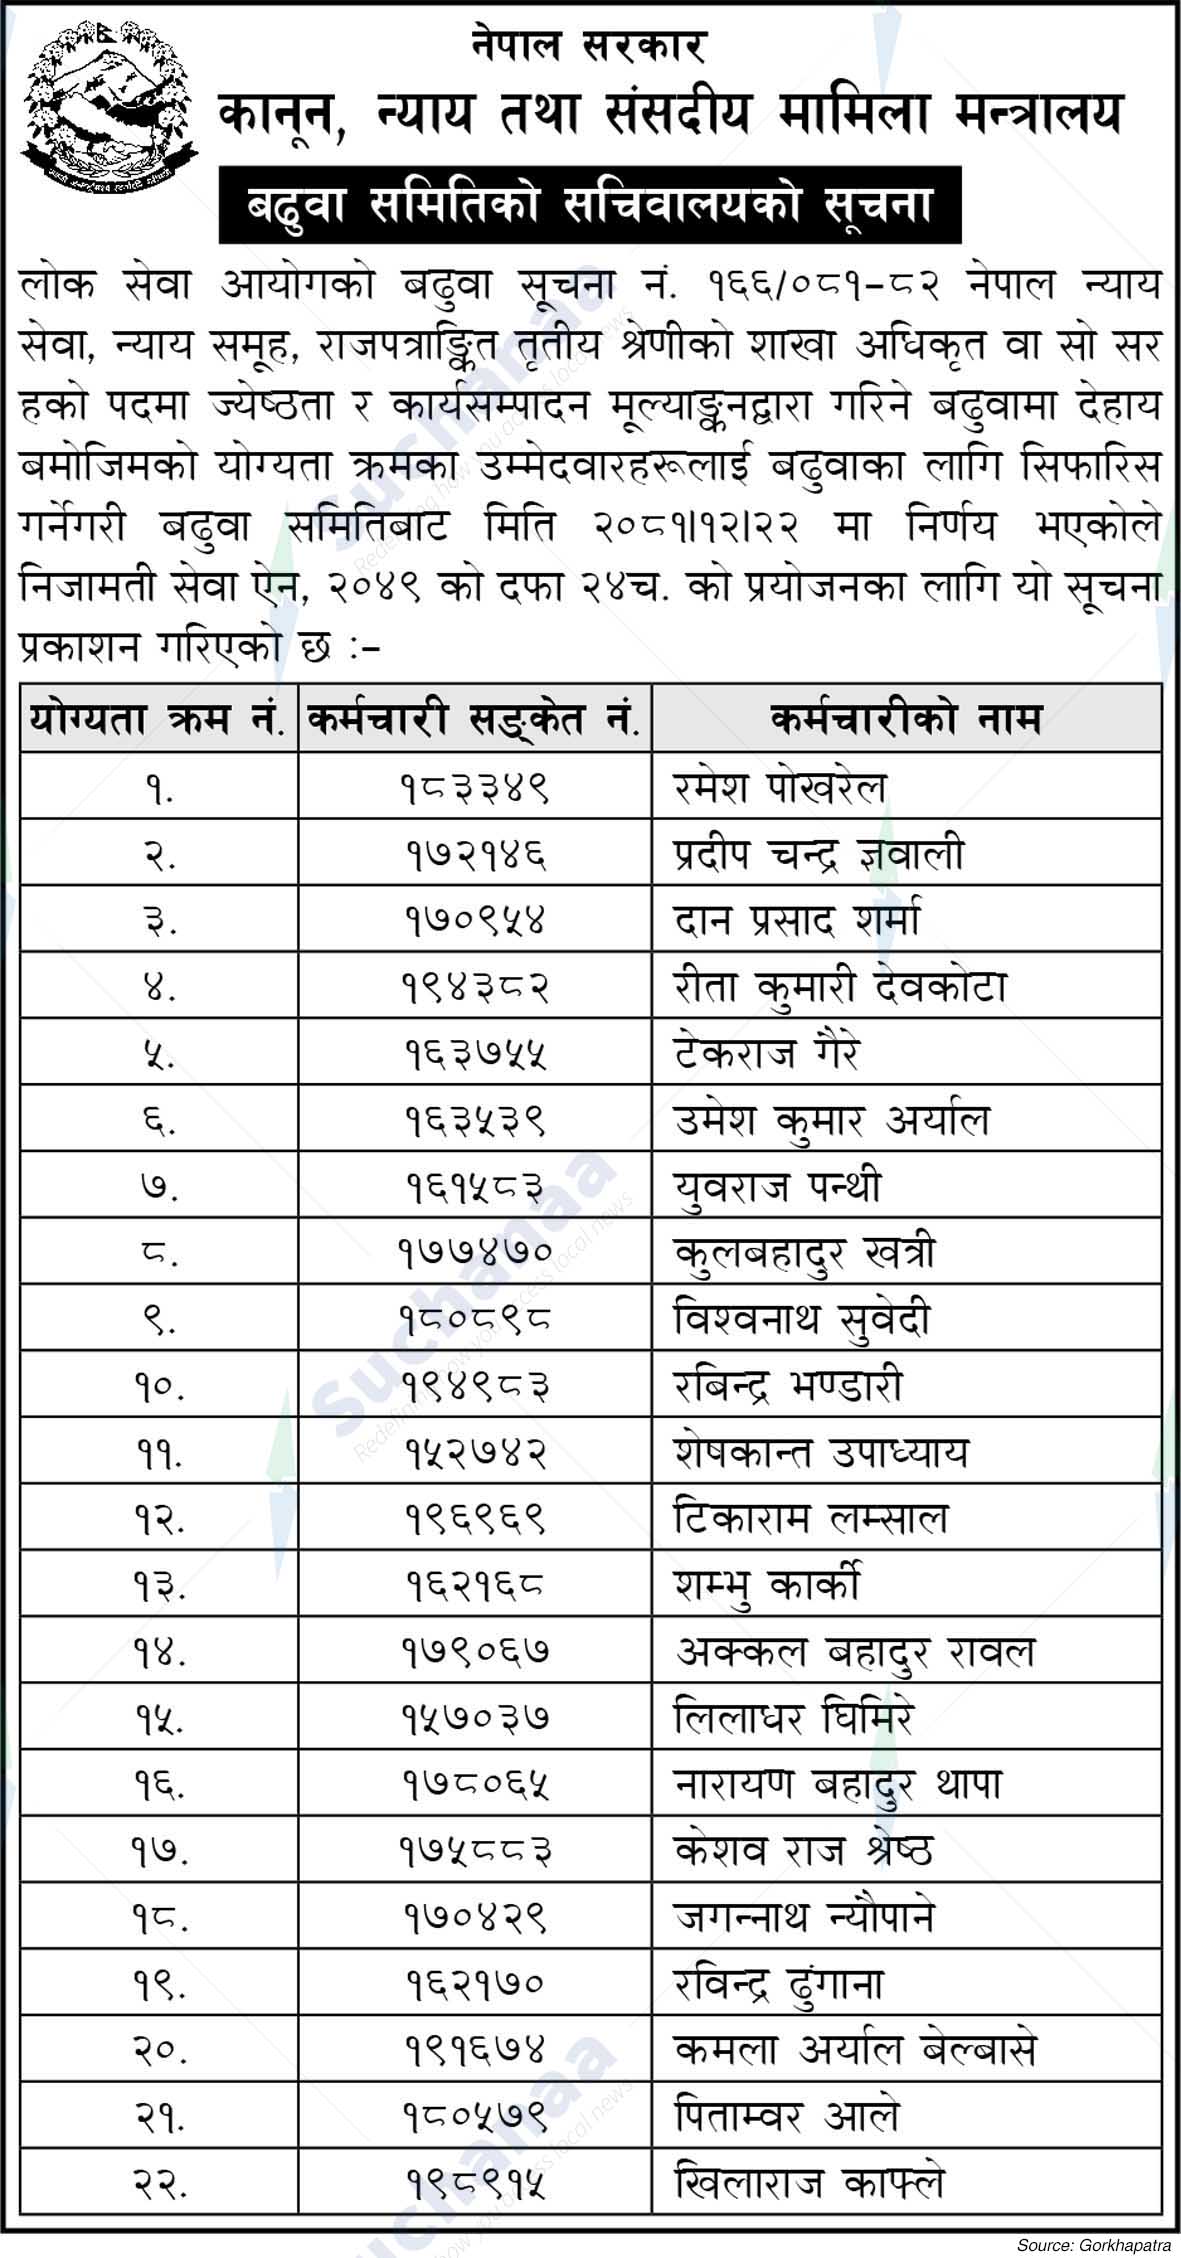 नेपाल सरकार
कानून, न्याय तथा संसदीय मामिला मन्त्रालय
बढुवा समितिको सचिवालयको सूचना
लोक सेवा आयोगको बढुवा सूचना नं. १६६/०८१-८२ नेपाल न्याय
सेवा, न्याय समूह, राजपत्राङ्कित तृतीय श्रेणीको शाखा अधिकृत वा सो सर
हको पदमा ज्येष्ठता र कार्यसम्पादन मूल्याङ्कनद्वारा गरिने बढुवामा देहाय
बमोजिमको योग्यता क्रमका उम्मेदवारहरूलाई बढुवाका लागि सिफारिस
गर्नेगरी बढुवा समितिबाट मिति २०८१।१२।२२ मा निर्णय भएकोले
निजामती सेवा ऐन, २०४९ को दफा २४च. को प्रयोजनका लागि यो सूचना
प्रकाशन गरिएको छ :-
योग्यता क्रम नं. कर्मचारी सङ्केत नं. कर्मचारीको नाम
१. १८३३४९ रमेश पोखरेल
२. १७२१४६ प्रदीप चन्द्र ज्ञवाली
३. १७०९५४ दान प्रसाद शर्मा
४. १९४३८२ रीता कुमारी देवकोटा
५. १६३७५५ टेकराज गैरे
६. १६३५३९ उमेश कुमार अर्याल
७. १६१५८३ युवराज पन्थी
८. १७७४७० कुलबहादुर खत्री
९. १८०८९८ विश्वनाथ सुवेदी
१०. १९४९८३ रबिन्द्र भण्डारी
११. १५२७४२ शेषकान्त उपाध्याय
१२. १९६९६९ टिकाराम लम्साल
१३. १६२१६८ शम्भु कार्की
१४. १७९०६७ अक्कल बहादुर रावल
१५. १५७०३७ लिलाधर घिमिरे
१६. १७८०६५ नारायण बहादुर थापा
१७. १७५८८३ केशव राज श्रेष्ठ
१८. १७०४२९ जगन्नाथ न्यौपाने
१९. १६२१७० रविन्द्र ढुंगाना
२०. १९१६७४ कमला अर्याल बेल्बासे
२१. १८०५७९ पिताम्वर आले
२२. १९८९१५ खिलाराज काफ्ले
Suchanaa
Redefining how you access local news
Suchanaa
Redefining how you access local news
Suchanaa
Source: Gorkhapatra